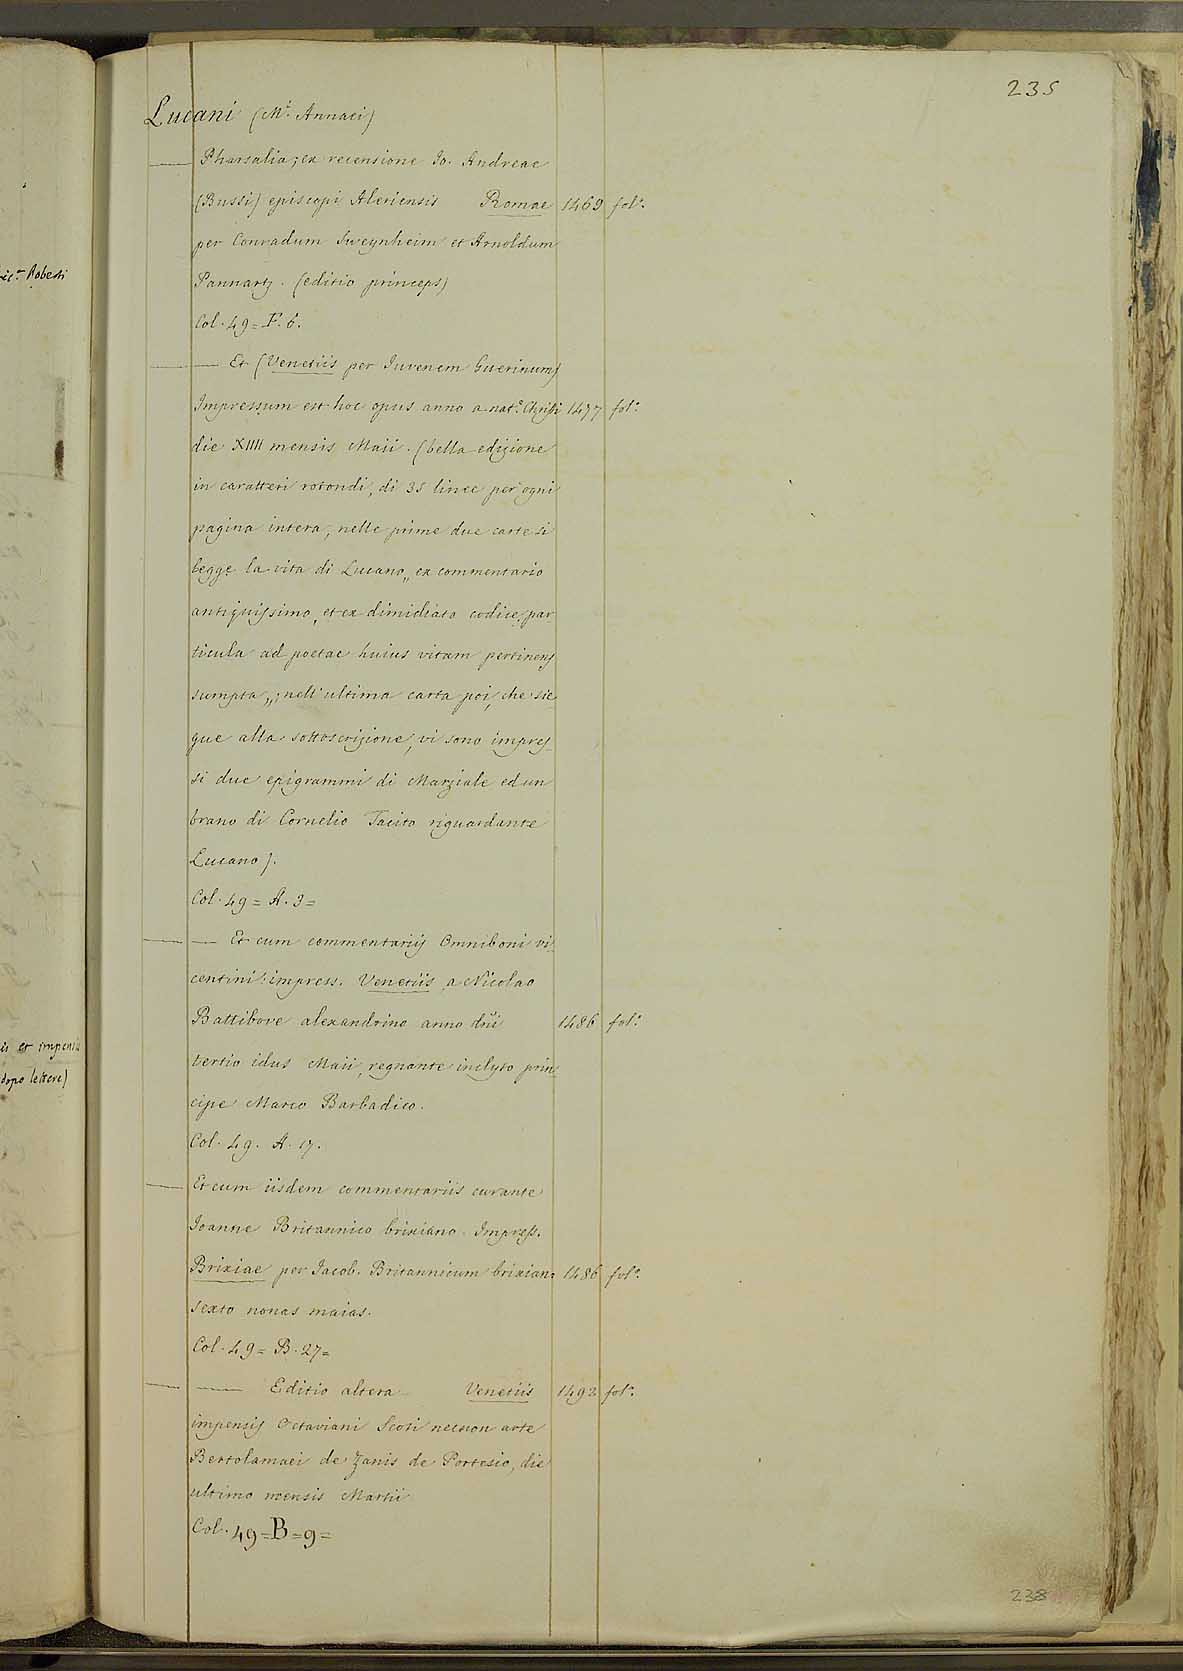 235
Lucani (M.i Annaei)
— Pharsalia; ex recensione Io. Andreae
(Bussi) episcopi Aleriensis Romae 1469 fol.o
per Conradum Sweynheim et Arnoldum
Pannartz. (editio princeps)
Col. 49 = F. 6.
— — Et (Venetiis per Iuvenem Guerinum)
Impressum est hoc opus anno a nat.e Christi 1477 fol.o
die XIIII mensis Maii. (bella edizione
in caratteri rotondi, di 35 linee per ogni
pagina intera, nelle prime due carte si
legge la vita di Lucano „ ex commentario
antiquissimo, et ex dimidiato codice, par
ticula ad poetae huius vitam pertinens
sumpta „; nell'ultima carta poi, che sie
gue alla sottoscrizione, vi sono impres_
si due epigrammi di Marziale ed un
brano di Cornelio Tacito riguardante
Lucano).
Col. 49 = A. 3 =
— — Et cum commentariis Omniboni vi_
centini: impress. Venetiis a Nicolao
Battibove alexandrino anno dñi 1486 fol.o
tertio idus Maii, regnante inclyto prin_
cipe Marco Barbadico.
Col. 49. A. 17.
— Et cum iisdem commentariis curante
Ioanne Britannico brixiano. Impress.
Brixiae per Iacob. Britannicum brixian= 1486 fol.o
sexto nonas maias.
Col. 49 = B. 27 =
— — Editio altera Venetiis 1492 fol.o
impensis Octaviani Scoti necnon arte
Bertolamaei de Zanis de Portesio, die
ultimo mensis Martii
Col. 49 = B = 9 =
238
Roberti
is et impensis
dopo lettere)